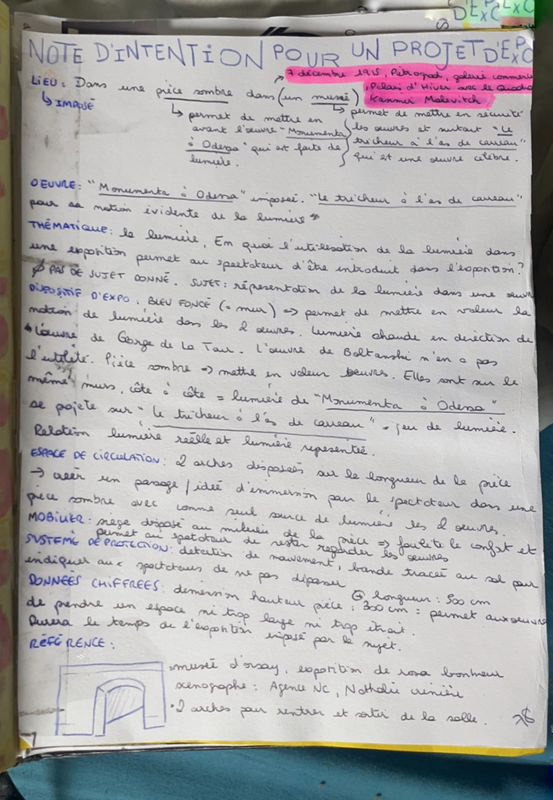 D'EXPO
NOTE D'INTENTION POUR UN PROJET D'EXPO
7 décembre 1915, Pétrograd, galerie
LIEU: Dans une pièce sombre dans (un musée)
Palais d'Hiver avec le
Kasimir Malevitch
↳ IMPOSÉ
↳ permet de mettre en
avant l'œuvre "Monumenta
à Odessa" qui est faite de
lumière.
↳ permet de mettre en sécurité
les œuvres et surtout "Le
tricheur à l'as de carreau"
qui est une œuvre célèbre.
OEUVRE: "Monumenta à Odessa" imposée. "Le tricheur à l'as de carreau"
pour sa notion évidente de la lumière
THÉMATIQUE: la lumière, En quoi l'utilisation de la lumière dans
une exposition permet au spectateur d'être introduit dans l'exposition?
PAS DE SUJET DONNÉ. SUJET: représentation de la lumière dans une œuvre
DISPOSITIF D'EXPO: BLEU FONCÉ (= mur) => permet de mettre en valeur la
notion de lumière dans les 2 œuvres. Lumière chaude en direction de
L'œuvre de George de La Tour. L'œuvre de Boltanski n'en a pas
l'utilité. Pièce sombre => mettre en valeur œuvres. Elles sont sur le
même murs, côte à côte = lumière de "Monumenta à Odessa"
se projete sur "Le tricheur à l'as de carreau" = jeu de lumière.
Relation lumière réelle et lumière representée.
ESPACE DE CIRCULATION: 2 arches disposées sur la longueur de la pièce
→ créer un passage / idée d'immersion pour le spectateur dans une
pièce sombre avec comme seul source de lumière les 2 œuvres.
MOBILIER: siège disposé au milieu de la pièce => facilite le confort et
permet au spectateur de rester regarder les œuvres
SYSTÈME DE PROTECTION: detection de mouvement, bande tracée au sol pour
indiquer aux spectateurs de ne pas dépasser
DONNÉES CHIFFRÉES: dimension hauteur pièce: 300 cm = permet aux œuvres
longueur: 500 cm
de prendre un espace ni trop large ni trop étroit.
Durera le temps de l'exposition imposé par le sujet.
RÉFÉRENCE:
• musée d'orsay, exposition de rosa bonheur
scénographe: Agence NC, Nathalie crinière
• 2 arches pour rentrer et sortir de la salle.